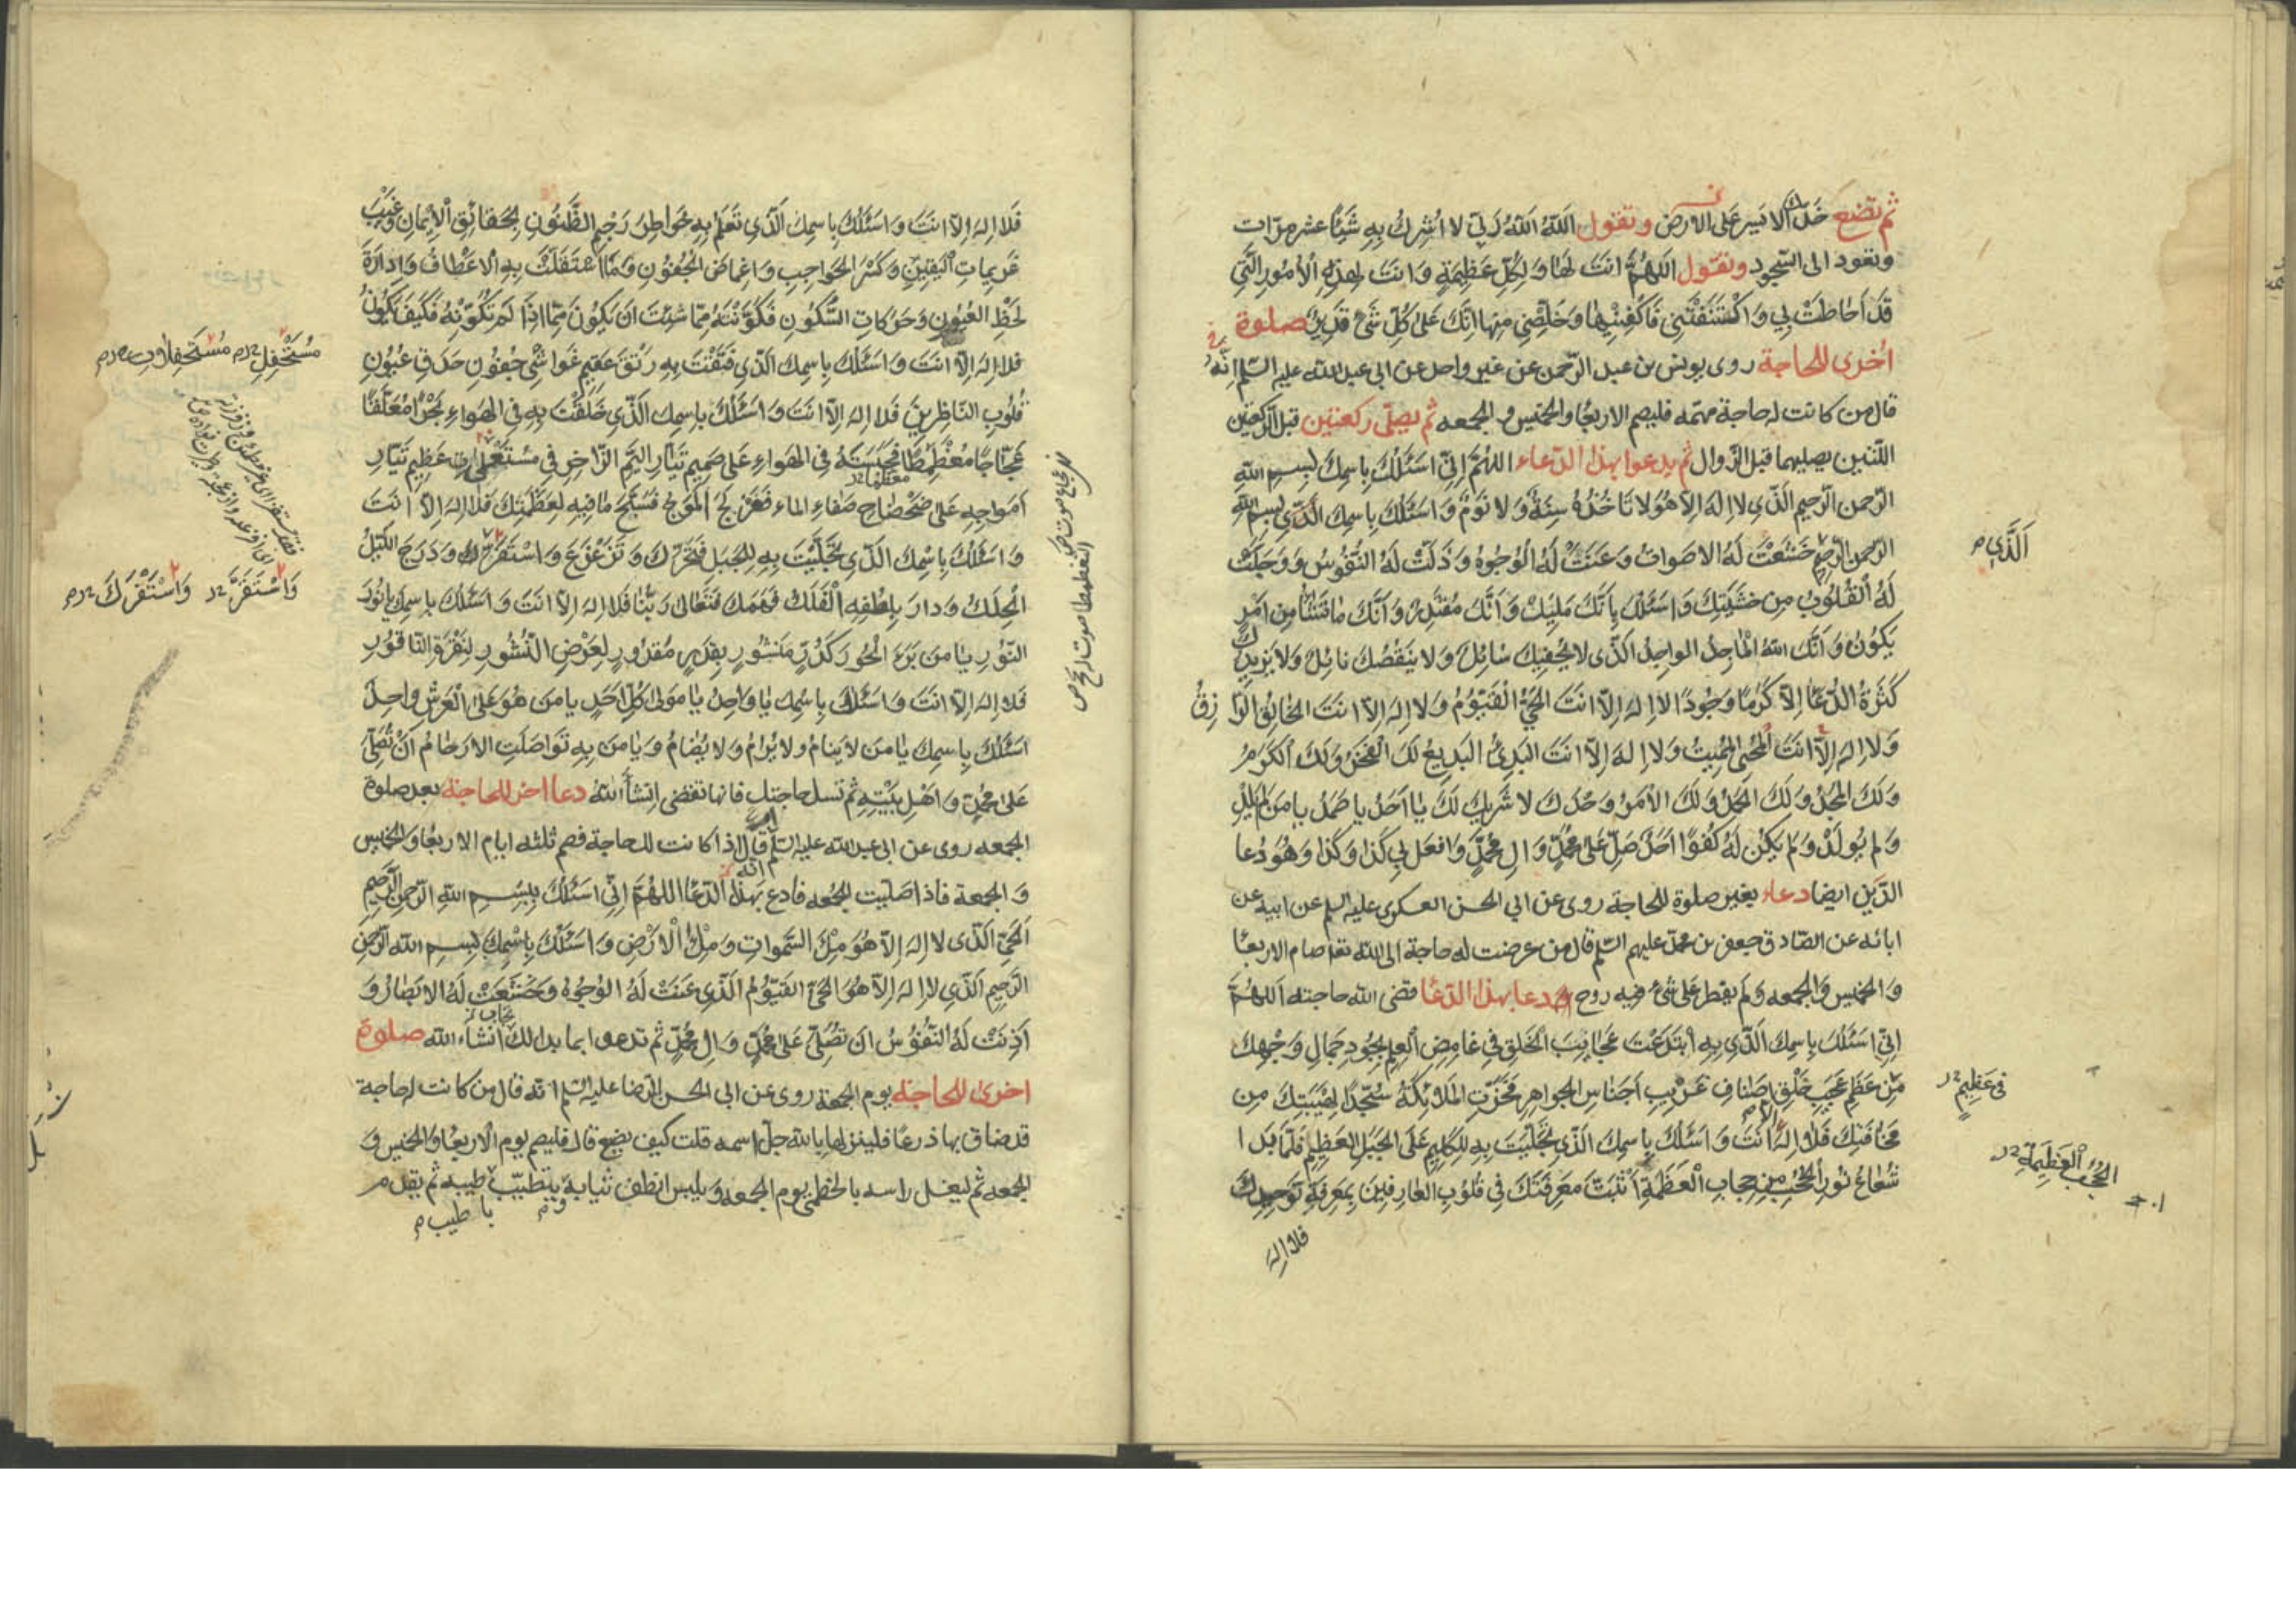 ثم تضع خدك الايسر على الارض وتقول اَللّهُ اَللّهُ رَبّي لا اُشرِكُ بِهِ شَيْئًا عشر مرّات
وتعود الى السّجود وتقول اَللّهُمَّ اَنتَ لَها وَلِكُلِّ عَظيمَةٍ وَاَنتَ لِهذِهِ الْاُمُورِ الَّتي
قَدْ اَحاطَتْ بي وَاكْتَنَفَتْني فَاكْفِنيها وَخَلِّصْني مِنها اِنَّكَ عَلى كُلِّ شَيْءٍ قَديرٌ صلوة
اُخرى للحاجة روى يونس بن عبد الرّحمن عن غير واحد عن ابي عبد الله عليه السّلم اِنَّهُ
قال من كانت له حاجة مهمّه فليصم الاربعا والخميس و الجمعه ثم يصلّى ركعتين قبل الرّكعتين
اللّتين يصليهما قبل الزّوال ثم يدعوا بهذا الدّعاء اللهُمَّ اِنّي اَسْئَلُكَ بِاسمِكَ بِسمِ اللهِ
الرّحمنِ الرّحيمِ الَّذي لا اِلهَ اِلّا هُوَ لا تَاْخُذُهُ سِنَةٌ وَلا نَوْمٌ وَاَسْئَلُكَ بِاسمِكَ الَّذي بسم اللهِ
الرّحمن الرّحيم خَشَعَتْ لَهُ الاصواتُ وَعَنَتْ لَهُ الْوُجُوهُ وَذَلَّتْ لَهُ النُّفُوسُ وَوَجِلَتْ
اَلَّذي م
لَهُ الْقُلُوبُ مِن خَشْيَتِكَ وَاَسْئَلُكَ بِاَنَّكَ مَليكٌ وَاَنَّكَ مُقْتَدِرٌ وَاَنَّكَ ما تَشَاْ مِن اَمْرٍ
يَكُونُ وَاَنَّكَ اللهُ الْماجِدُ الواحِدُ الَّذي لا يُحْفيكَ سائِلٌ وَلا يَنْقُصُكَ نائِلٌ وَلا يَزيدُكَ
كَثْرَةُ الدُّعاءِ اِلّا كَرَمًا وَجُودًا لا اِلهَ اِلّا اَنتَ الْحَيُّ الْقَيُّومُ وَلا اِلهَ اِلّا اَنتَ الخالِقُ الرّازِقُ
وَلا اِلهَ اِلّا اَنتَ الْمُحْيِى الْمُميتُ وَلا اِلهَ اِلّا اَنتَ البَدِئُ البَديعُ لَكَ الْفَخْرُ وَلَكَ الْكَرَمُ
وَلَكَ الْمَجْدُ وَلَكَ الْحَمْدُ وَلَكَ الْاَمْرُ وَحْدَكَ لا شَريكَ لَكَ يا اَحَدُ يا صَمَدُ يا مَن لَم يَلِدْ
وَلم يُولَدْ وَلم يَكُنْ لَهُ كُفُوًا اَحَدٌ صَلِّ عَلى مُحَمَّدٍ وَالِ مُحَمَّدٍ وَافعَل بي كَذا وَكَذا وَهُوَ دُعا
الدَّينِ ايضا دعاء بغير صلوة للحاجة روى عن ابي الحسن العسكرى عليه السلم عن ابيه عن
ابائه عن الصّادق جعفر بن محمد عليهم السّلم قال من عرضت له حاجة الى الله تعا صام الاربعا
وَالخميس وَالجمعه وَلَم يفطر على شيء فيه روح ودعا بهذا الدّعا قضى الله حاجته اَللهُمَّ
اِنّي اَسْئَلُكَ بِاسمِكَ الَّذي بِهِ ابْتَدَعْتَ عَجائِبَ الْخَلقِ في غامِضِ الْعِلمِ بِجُودِ جَمالِ وَجْهِكَ
مِن عَظيمِ عَجيبِ خَلْقِ اَصنافِ غَريبِ اَجناسِ الجَواهِرِ فَخَرَّتِ المَلائِكَةُ سُجَّدًا لِهَيْبَتِكَ مِن
فى عَظيمِ خ د
مَخافَتِكَ فَلا اِلهَ اِلّا اَنتَ وَاَسْئَلُكَ بِاسمِكَ الَّذي تَجَلَّيْتَ بِهِ لِلْكَليمِ عَلَى الْجَبَلِ الْعَظيمِ فَلَمّا بَدا
شُعاعُ نُورِ الْحُجُبِ مِن حِجابِ الْعَظَمَةِ اَثْبَتَّ مَعرِفَتَكَ في قُلُوبِ العارِفينَ بِمَعْرِفَةِ تَوْحيدِكَ
الْحُجُبِ الْعَظيمَةِ
فلا اِلهَ
فَلا اِلهَ اِلّا اَنتَ وَاَسْئَلُكَ بِاسمِكَ الَّذي تَعْلَمُ بِهِ خَواطِرَ رَجْمِ الظُّنُونِ بِحَقائِقِ الْايمانِ وَغَيْبَ
عَزيماتِ الْيَقينِ وَكَسْرَ الْحَواجِبِ وَاِغماضَ الْجُفُونِ وَمَا اسْتَقَلَّتْ بِهِ الْاَعْطافُ وَاِدارَةَ
لَحْظِ الْعُيُونِ وَحَرَكاتِ السُّكُونِ فَكَوَّنْتَهُ مِمّا شِئْتَ اَن يَكُونَ مِمّا اِذا لَم تُكَوِّنْهُ فَكَيْفَ يَكُونُ
فلا اِلهَ اِلّا اَنتَ وَاَسْئَلُكَ بِاسمِكَ الَّذي فَتَقْتَ بِهِ رَتْقَ عَقيمِ غَواشي جُفُونِ حَدَقِ عُيُونِ
قُلُوبِ النّاظِرينَ فَلا اِلهَ اِلّا اَنتَ وَاَسْئَلُكَ بِاسمِكَ الَّذي خَلَقْتَ بِهِ فِي الْهَواءِ بَحْرًا مُعَلَّقًا
عَجّاجًا مُغَطْمِطًا فَحَبَسْتَهُ فِي الهَواءِ عَلى صَميمِ تَيّارِ الْيَمِّ الزّاخِرِ في مُسْتَفْحِلاتِ عَظيمِ تَيّارِ
اَمواجِهِ عَلى ضَحْضاحِ صَفاءِ الماءِ فَعَزْلَجَ الْمَوْجُ فَسَبَّحَ ما فيهِ لِعَظَمَتِكَ فَلا اِلهَ اِلّا اَنتَ
وَاَسْئَلُكَ بِاسمِكَ الَّذي تَجَلَّيْتَ بِهِ لِلْجَبَلِ فَتَحَرَّكَ وَتَزَعْزَعَ وَاسْتَفْزَزَكَ وَدَرَجَ اللَّيْلُ
الْحَلِكُ وَدارَ بِلُطْفِهِ الْفَلَكُ فَهَمَكَ فَتَعالى رَبُّنا فَلا اِلهَ اِلّا اَنتَ وَاَسْئَلُكَ بِاسمِكَ يا نُورَ
النُّورِ يا مَن بَرَءَ الْحُورَ كَدُرٍّ مَنثُورٍ بِقَدَرٍ مَقْدُورٍ لِعَرْضِ النُّشُورِ لِنَقْرَةِ النّاقُورِ
فَلا اِلهَ اِلّا اَنتَ وَاَسْئَلُكَ بِاسمِكَ يا واحِدُ يا مَوْلى كُلِّ اَحَدٍ يا مَن هُوَ عَلَى الْعَرْشِ واحِدٌ
اَسْئَلُكَ بِاسمِكَ يا مَن لا يَنامُ ولا يُرامُ وَلا يُضامُ وَيا مَن بِهِ تَواصَلَتِ الارحامُ اَنْ تُصَلِّيَ
عَلى مُحَمَّدٍ وَاَهلِ بَيْتِهِ ثم تسل حاجتك فانها تقضى اِنشاء اللهُ دعا اخر للحاجة بعد صلوة
الجمعه روى عن ابي عبد الله عليه السّلم انه قال اذا كانت لك حاجة فصم ثلثه ايام الاربعا والخميس
وَالجمعة فاذا صلّيت الجمعه فادع بهذا الدّعا اللهُمَّ اِنّي اَسْئَلُكَ بِبِسمِ اللهِ الرّحمنِ الرَّحيمِ
اَلْحَيِّ الَّذي لا اِلهَ اِلّا هُوَ مِلْءَ السَّمواتِ وَمِلْءَ الْاَرْضِ وَاَسْئَلُكَ بِاسْمِكَ بِسمِ اللهِ الرَّحمنِ
الرَّحيمِ الَّذي لا اِلهَ اِلّا هُوَ الحَيُّ القَيُّومُ الَّذي عَنَتْ لَهُ الْوُجُوهُ وَخَشَعَتْ لَهُ الابصارُ وَ
اَذِنَتْ لَهُ النُّفُوسُ ان تُصَلِّيَ عَلى مُحَمَّدٍ وَالِ مُحَمَّدٍ ثم تدعوا بما بدا لك انشاء الله صلوة
اخرى للحاجة يوم الجمعة روى عن ابي الحسن الرّضا عليه السّلم انّه قال من كانت له حاجة
قد ضاق بها ذرعًا فلينزلها بالله جلّ اسمه قلت كيف يصنع قال فليصم يوم الاربعا والخميس وَ
الجمعه ثم ليغسل راسه بالخطمى يوم الجمعه وَيلبس انظف ثيابه ويتطيّب باطيب طيبه ثم يقدم